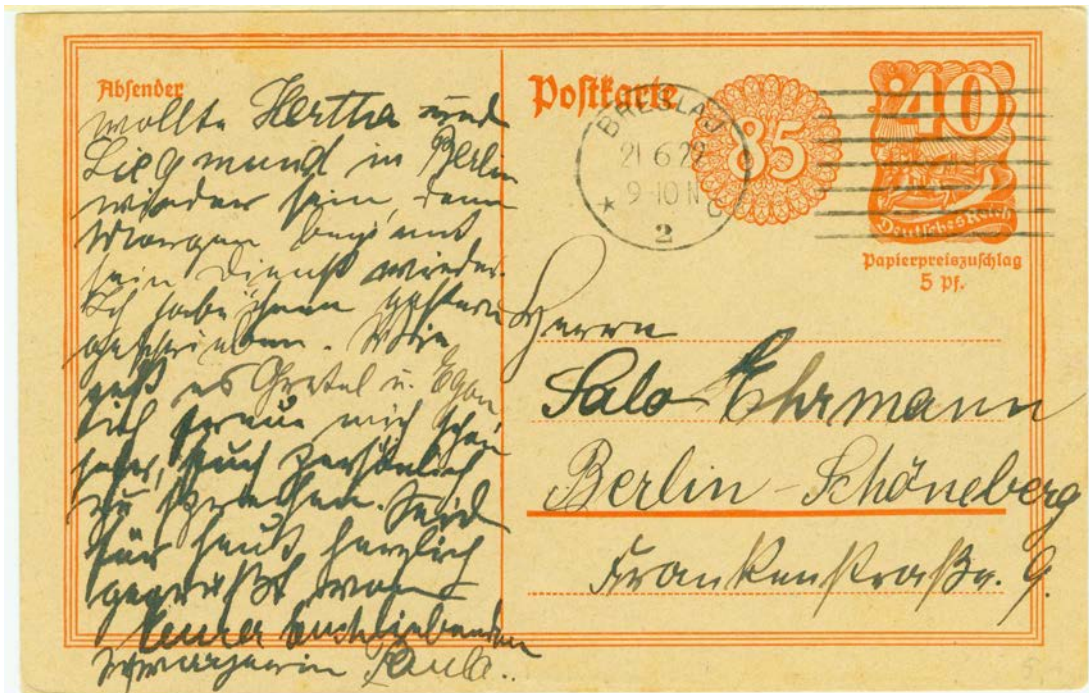 Absender
wollte Hertha und
Siegmund in Berlin
wieder sein, denn
Morgen beginnt
sein Dienst wieder.
Ich habe ihnen gestern
geschrieben. Wie
geht es Gretel u. Egon
Ich freue mich schon
sehr, Euch persönlich
zu sprechen. Seid
für heut, herzlich
gegrüßt von
Eurer
Schwägerin Paula.
Postkarte
BRESLAU
21 6 22
9-10 N
2
85
40
Deutsches Reich
Papierpreiszuschlag
5 Pf.
Herrn
Salo Ehrmann
Berlin-Schöneberg
Frankenstraße. 9.